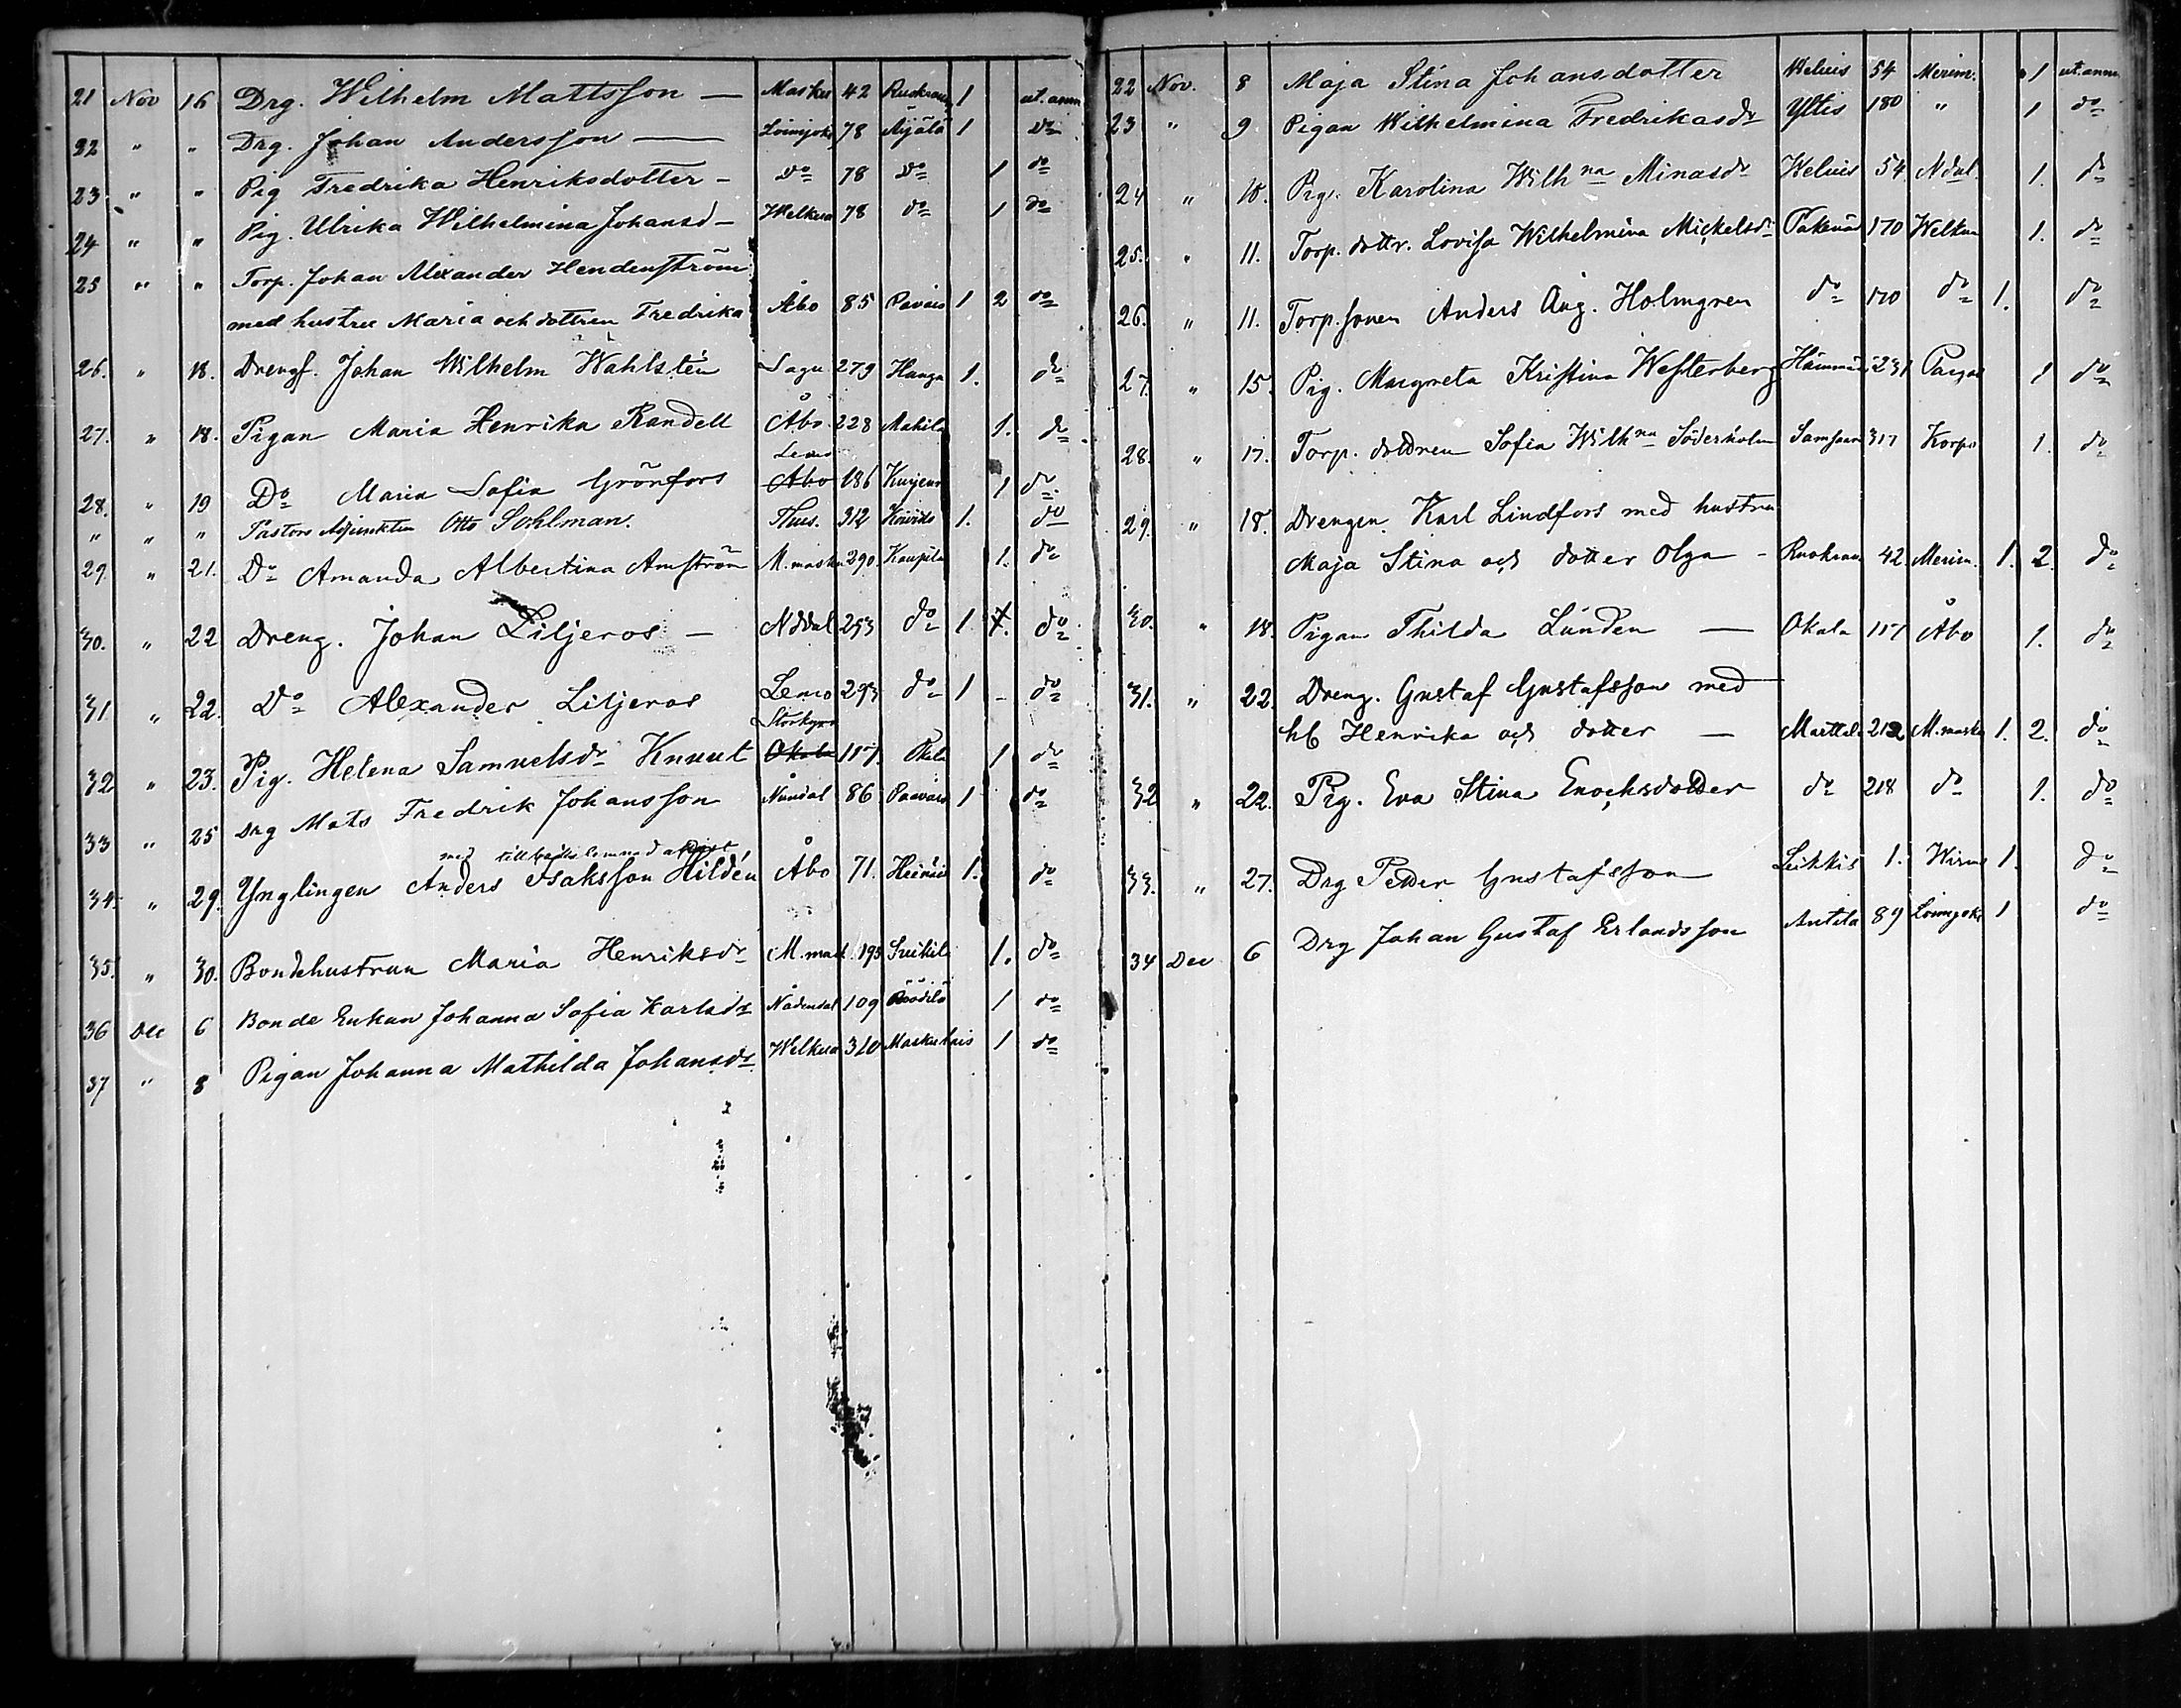 21 Nov 16 Drg. Wilhelm Mattsson — Masku 42 1 ut. anm
22 " " Drg. Johan Andersson — Loimijoki 78 Äijälä 1 do
23 " " Pig Fredrika Henriksdotter - do 78 do 1 do
24 " " Pig. Ulrika Wilhelmina Johansd - Welkua 78 do 1 do
25 " " Torp. Johan Alexander Hendenström
med hustru Maria och dottren Fredrika Åbo 85 Pavais 1 2 do
26. " 18. Drengf. Johan Wilhelm Wahlstén Sagu 279 Hanga 1. do
27. " 18. Pigan Maria Henrika Randell Åbo 228 Mahila 1. do
Lemo
28. " 19 Do Maria Sofia Grönfors Åbo 186 1 do
" " " Pastors Adjunkten Otto Sohlman. Thus. 312 1. do
29. " 21. Do Amanda Albertina Amström M.masku 290. Kaupila 1. do
30. " 22 Dreng. Johan Liljeros — Nddal 253 do 1 1. do
31 " 22. Do Alexander Liljeros Lemo 293 do 1 - do
Storkyro
32 " 23. Pig. Helena Samuelsdr Knuut Okola 117. 1 do
33 " 25 Drg Mats Fredrik Johansson 86 Paavais 1 do
med
34. " 29. Ynglingen Anders Isaksson Hildén Åbo 71. 1. do
35. " 30. Bondehustrun Maria Henriksdr M.mask. 195 1. do
36 Dec 6 Bonde Enkan Johanna Sofia Karlsdr Nådendal 109 1 do
37 " 8 Pigan Johanna Mathilda Johansdr Welkua 310 Maskuhais 1 do
22 Nov. 8 Maja Stina Johansdotter Weluis 54 Merim. 1 ut. anm.
23 " 9 Pigan Wilhelmina Fredrikasdr Yltis 180 " 1 do
24 " 10. Pig. Karolina Wilhna Minasdr Weluis 54. Ndal. 1. do
25. " 11. Torp. dottr. Lovisa Wilhelmina Mickelsdr 170 Welkua 1. do
26. " 11. Torp.sonen Anders Aug. Holmgren do 170 do 1. do
27. " 15. Pig. Margreta Kristina Westerberg 231 Pargas 1 do
28. " 17. Torp. dottren Sofia Wilhna Söderholm 317 Korpo 1. do
29. " 18. Drengen Karl Lindfors med hustru
Maja Stina och dotter Olga - 42. Merim. 1. 2. do
30. " 18. Pigan Thilda Lunden — Okola 117 Åbo 1. do
31. " 22. Dreng. Gustaf Gustafsson med
hb Henrika och dotter — Marttila 212 M.masku 1. 2. do
32 " 22. Pig. Eva Stina Enochsdotter do 218 do 1. do
33. " 27. Drg Petter Gustafsson Leikkis 1. Wirmo 1. do
34 Dec 6 Drg Johan Gustaf Erlandsson Anttila 89 Loimijoki 1 do